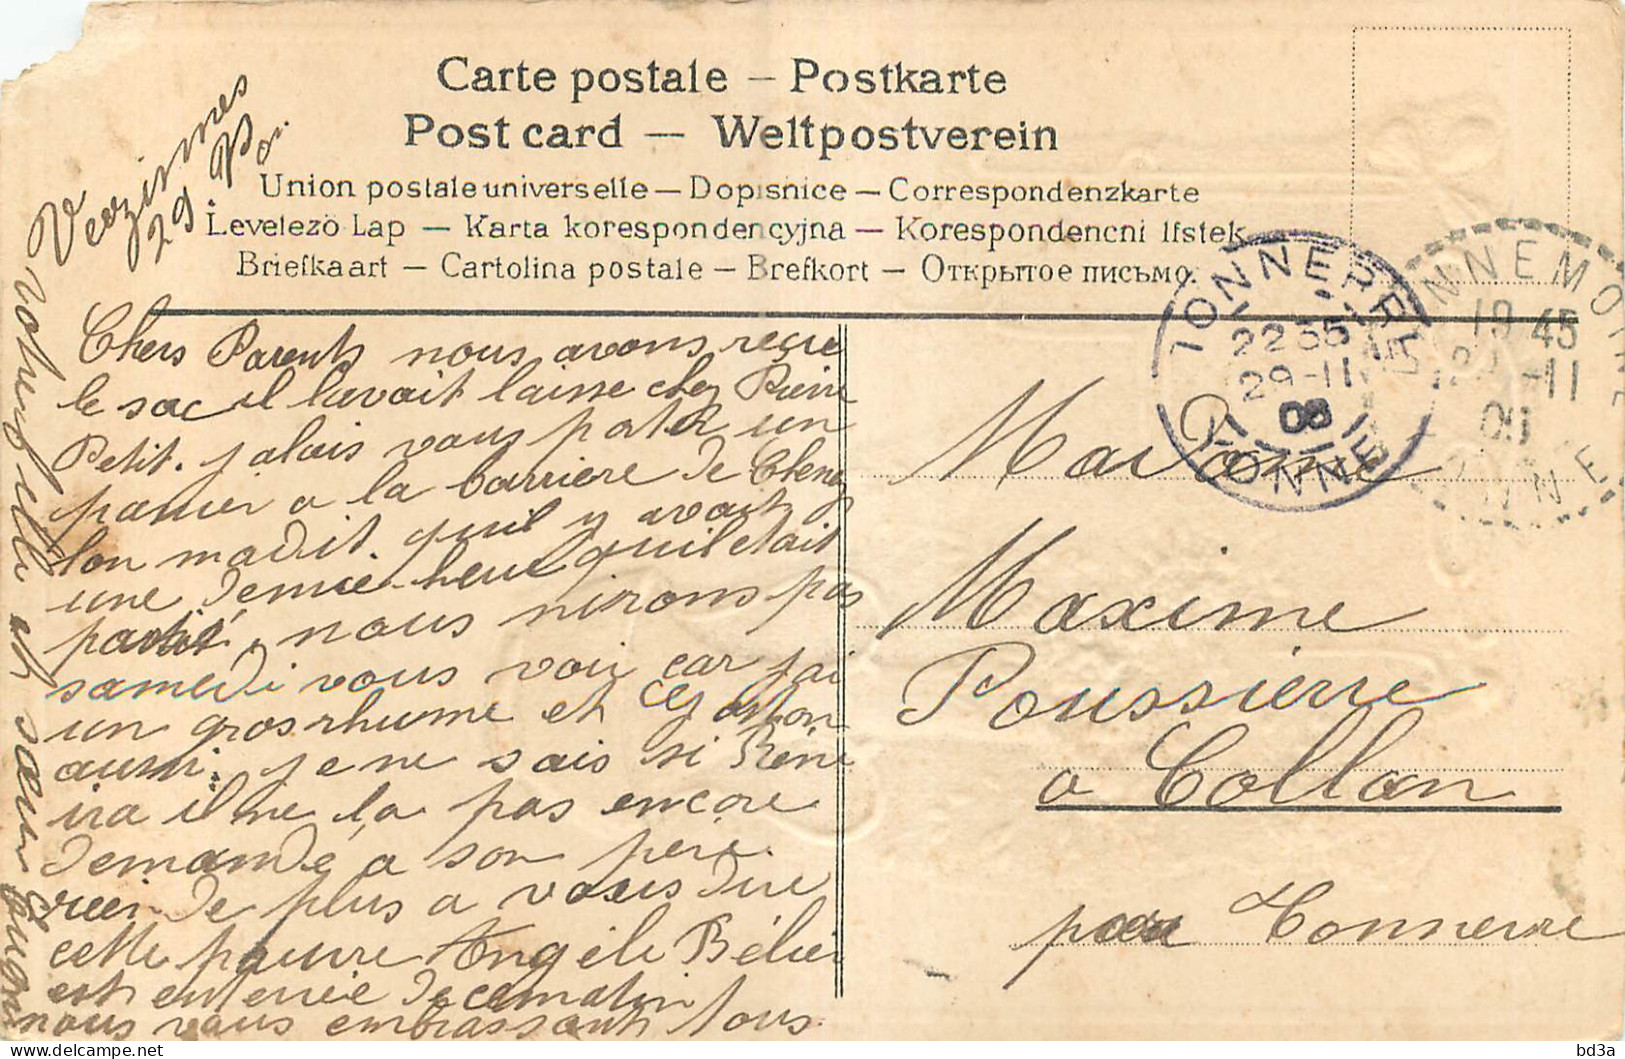 Carte postale – Postkarte
Post card — Weltpostverein
Union postale universelle — Dopisnice — Correspondenzkarte
Levelezö Lap — Karta korespondencyjna — Korespondencni lístek
Briefkaart — Cartolina postale — Brefkort — Открытое письмо.
Vezinnes
29 Nov.
Chers Parents nous avons reçue
le sac il lavait laisse chez Pierre
Petit. jalais vous porter un
panier a la barriere de Cheney
lon madit. quil y avait
une demie heure quil etait
partit, nous nirons pas
samedi vous voir car jai
un gros rhume et Gaston
aussi. je ne sais si René
ira il ne la pas encore
demandé a son pere.
rien de plus a vous dire
cette pauvre Angéle Bélier
est enterrée de cematin
nous vous embrassant tous.
votre fille et sœur Eugenie
TONNERRE
22 35
29-11
08
YONNE
19 45
29-11
08
YONNE
Madame
Maxime
Poussierre
a Collan
par Tonnerre
bd3a